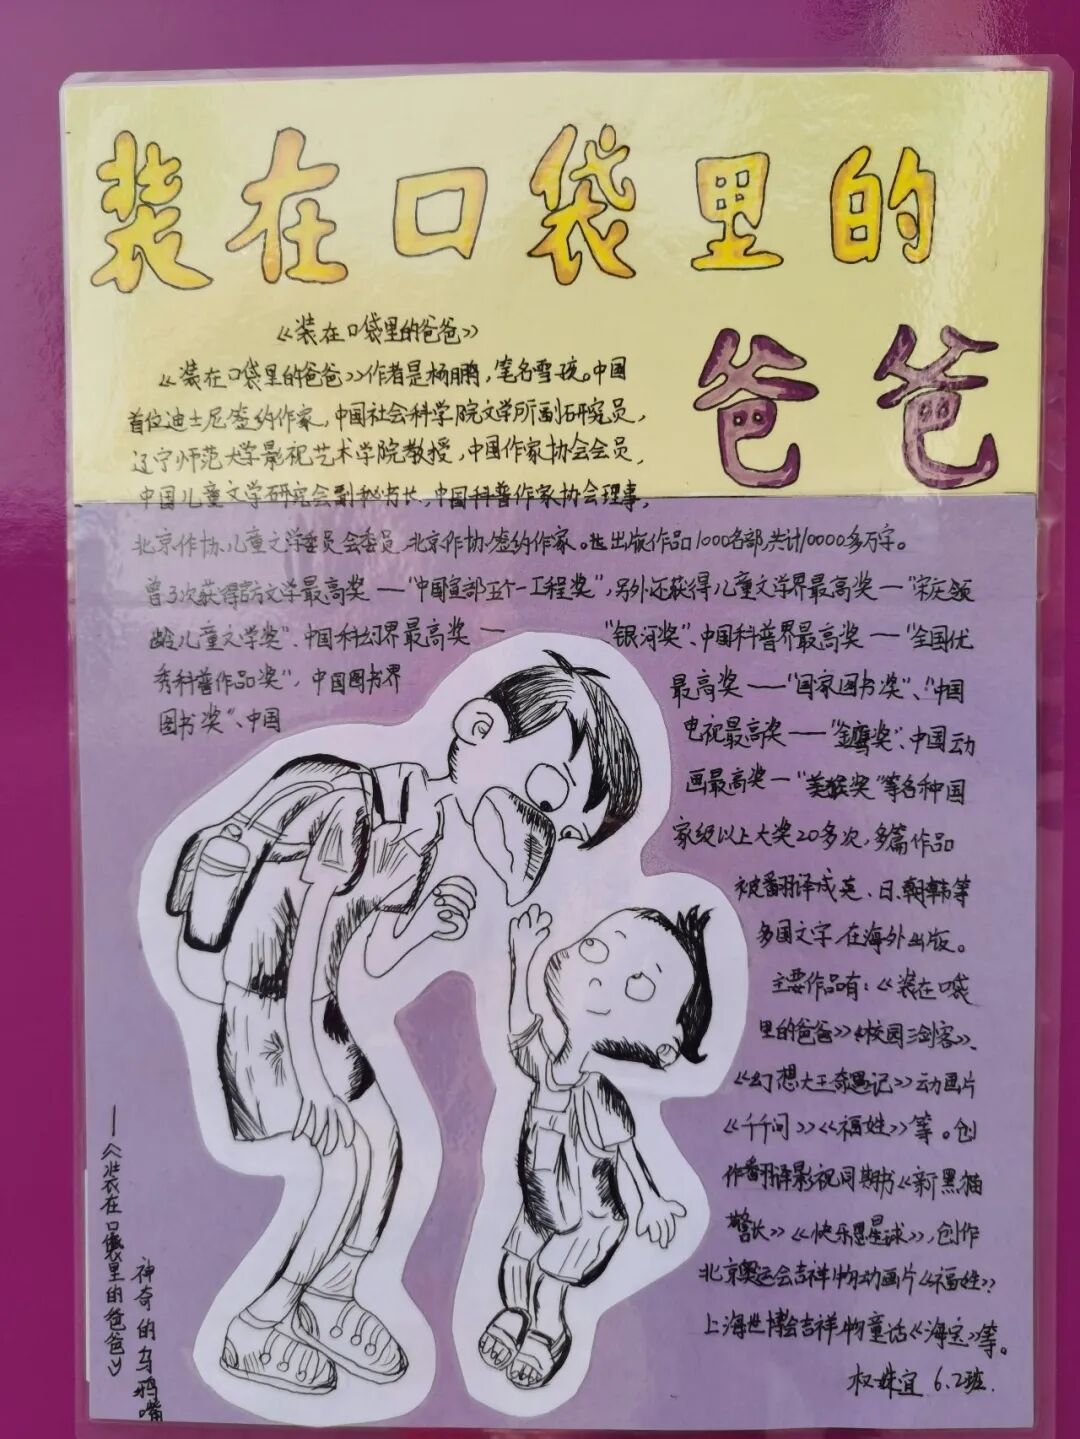 装在口袋里的
爸爸
《装在口袋里的爸爸》
《装在口袋里的爸爸》作者是杨鹏，笔名雪孩。中国
首位迪士尼签约作家，中国社会科学院文学所副研究员，
辽宁师范大学影视艺术学院教授，中国作家协会会员，
中国儿童文学研究会副秘书长，中国科普作家协会理事，
北京作协儿童文学委员会委员，北京作协签约作家。出版作品1000名部，共计10000多万字。
曾3次获得文学最高奖——“中国宣部五个一工程奖”，另外还获得儿童文学界最高奖—“宋庆领
龄儿童文学奖”、中国科幻界最高奖— “银河奖”、中国科普界最高奖—“全国优
秀科普作品奖”，中国图书界 最高奖——“国家图书奖”、“中国
图书奖”、中国 电视最高奖——“金鹰奖”、中国动
画最高奖—“美猴奖”等各种国
家级以上大奖20多次，多篇作品
被翻译成英、日、朝韩等
多国文字在海外出版。
主要作品有：《装在口袋
里的爸爸》《校园三剑客》、
《幻想大王奇遇记》动画片
《千千问》《福娃》等。创
作翻译影视同期书《新黑猫
警长》《快乐星球》，创作
北京奥运会吉祥物动画片《福娃》
上海世博会吉祥物童话《海宝》等。
权姝宜 6.2班.
——《装在口袋里的爸爸》
神奇的乌鸦嘴